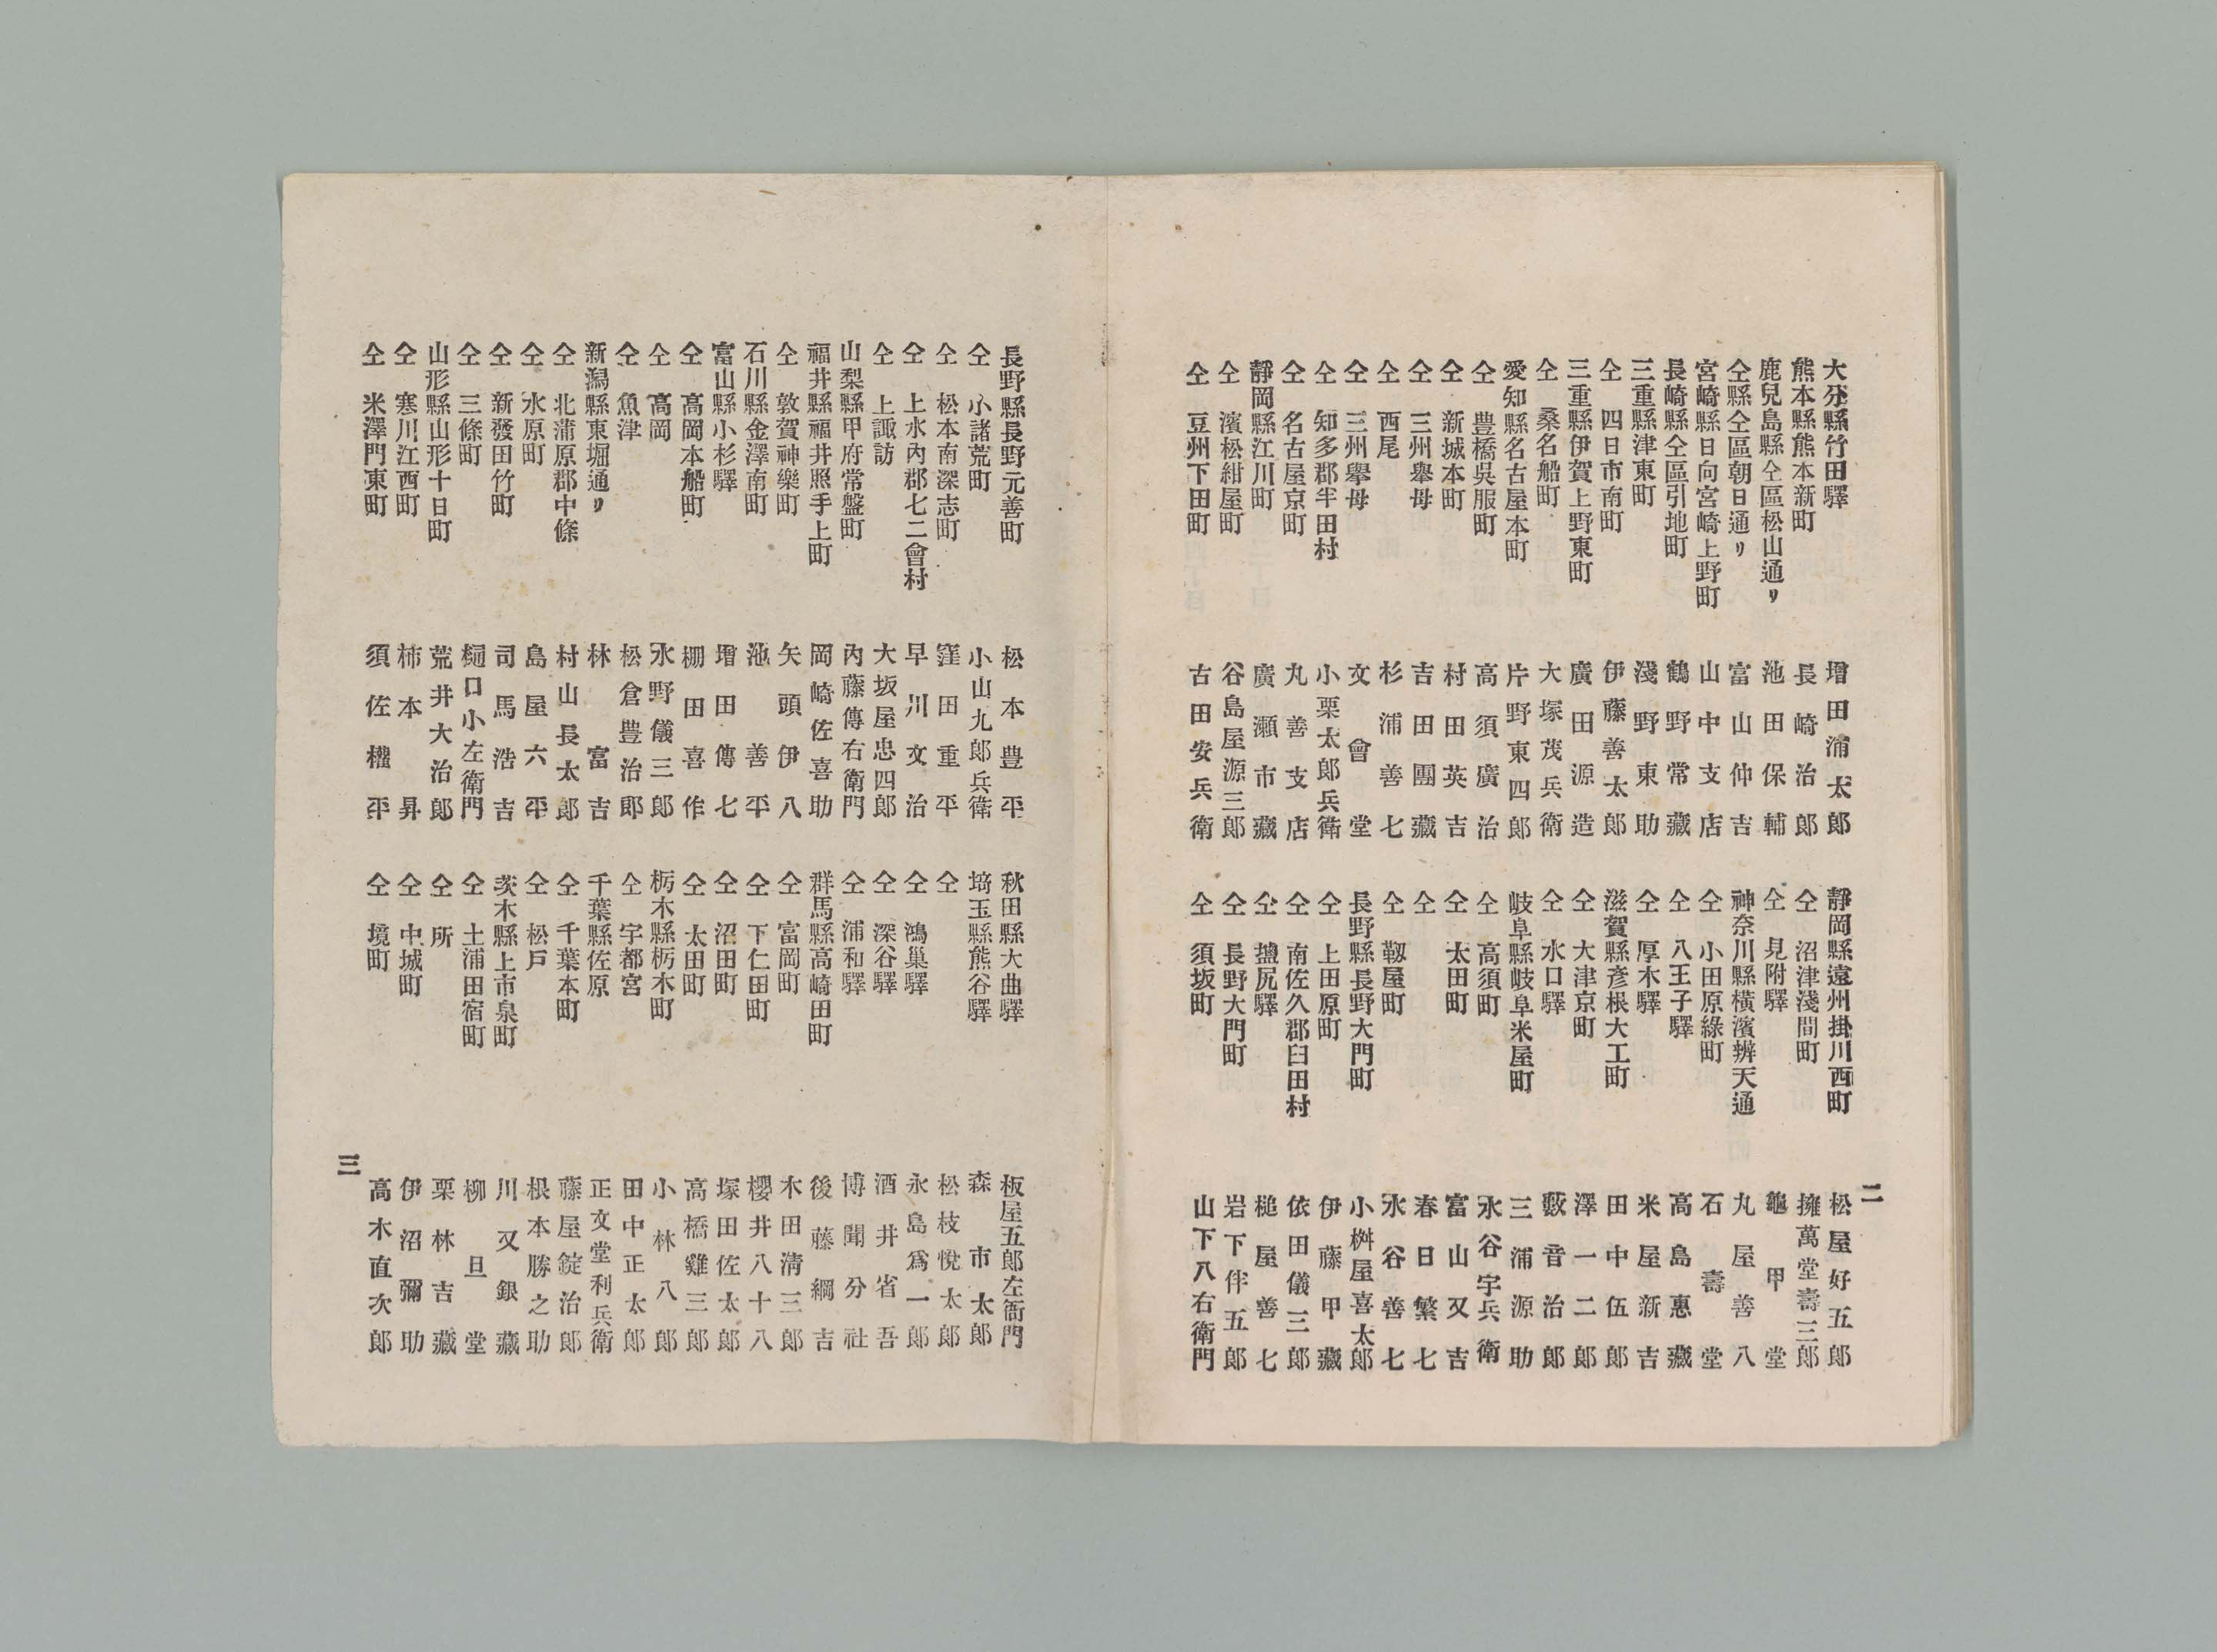 二
大分縣竹田驛 增田浦太郎
熊本縣熊本新町 長崎治郎
鹿兒島縣仝區松山通リ 池田保輔
仝縣仝區朝日通リ 富山仲吉
宮崎縣日向宮崎上野町 山中支店
長崎縣仝區引地町 鶴野常藏
三重縣津東町 淺野東助
仝 四日市南町 伊藤善太郎
三重縣伊賀上野東町 廣田源造
仝 桑名船町 大塚茂兵衛
愛知縣名古屋本町 片野東四郎
仝 豊橋吳服町 高須廣治
仝 新城本町 村田英吉
仝 三州擧母 吉田團藏
仝 西尾 杉浦善七
仝 三州擧母 文會堂
仝 知多郡半田村 小栗太郎兵衛
仝 名古屋京町 丸善支店
靜岡縣江川町 廣瀨市藏
仝 濱松紺屋町 谷島屋源三郎
仝 豆州下田町 古田安兵衛
靜岡縣遠州掛川西町 松屋好五郎
仝 沼津淺間町 擁萬堂壽三郎
仝 見附驛 龜甲堂
神奈川縣橫濱辨天通 丸屋善八
仝 小田原綠町 石壽堂
仝 八王子驛 高島惠藏
仝 厚木驛 米屋新吉
滋賀縣彥根大工町 田中伍郎
仝 大津京町 澤一二郎
仝 水口驛 藪音治郎
岐阜縣岐阜米屋町 三浦源助
仝 高須町 水谷宇兵衛
仝 太田町 富山又吉
仝 春日繁七
仝 靱屋町 水谷善七
長野縣長野大門町 小桝屋喜太郎
仝 上田原町 伊藤甲藏
仝 南佐久郡臼田村 依田儀三郎
仝 鹽尻驛 槌屋善七
仝 長野大門町 岩下伴五郎
仝 須坂町 山下八右衛門
長野縣長野元善町 松本豊平
仝 小諸荒町 小山九郎兵衛
仝 松本南深志町 窪田重平
仝 上水內郡七二會村 早川文治
仝 上諏訪 大坂屋忠四郎
山梨縣甲府常盤町 內藤傳右衛門
福井縣福井照手上町 岡崎佐喜助
仝 敦賀神樂町 矢頭伊八
石川縣金澤南町 池善平
富山縣小杉驛 增田傳七
仝 高岡本船町 棚田喜作
仝 高岡 水野儀三郎
仝 魚津 松倉豊治郎
新潟縣東堀通リ 林富吉
仝 北蒲原郡中條 村山長太郎
仝 水原町 島屋六平
仝 新發田竹町 司馬浩吉
仝 三條町 樋口小左衛門
山形縣山形十日町 荒井大治郎
仝 寒川江西町 柿本昇
仝 米澤門東町 須佐權平
秋田縣大曲驛 板屋五郎左衞門
埼玉縣熊谷驛 森市太郎
仝 松枝悅太郎
仝 鴻巢驛 永島爲一郎
仝 深谷驛 酒井省吾
仝 浦和驛 博聞分社
群馬縣高崎田町 後藤綱吉
仝 富岡町 木田清三郎
仝 下仁田町 櫻井八十八
仝 沼田町 塚田佐太郎
仝 太田町 高橋難三郎
栃木縣栃木町 小林八郎
仝 宇都宮 田中正太郎
千葉縣佐原 正文堂利兵衛
仝 千葉本町 藤屋錠治郎
仝 松戶 根本勝之助
茨木縣上市泉町 川又銀藏
仝 土浦田宿町 柳旦堂
仝 所 栗林吉藏
仝 中城町 伊沼彌助
仝 境町 高木直次郎
三